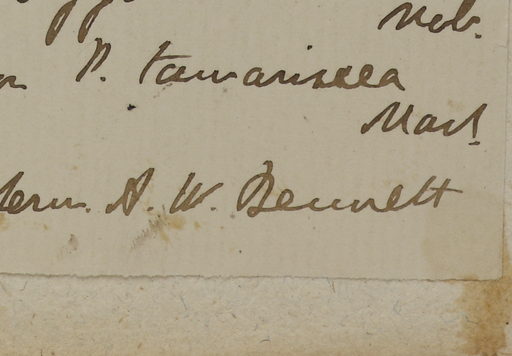 Nob.
P. tamariscea
Mart.
A. W. Bennett